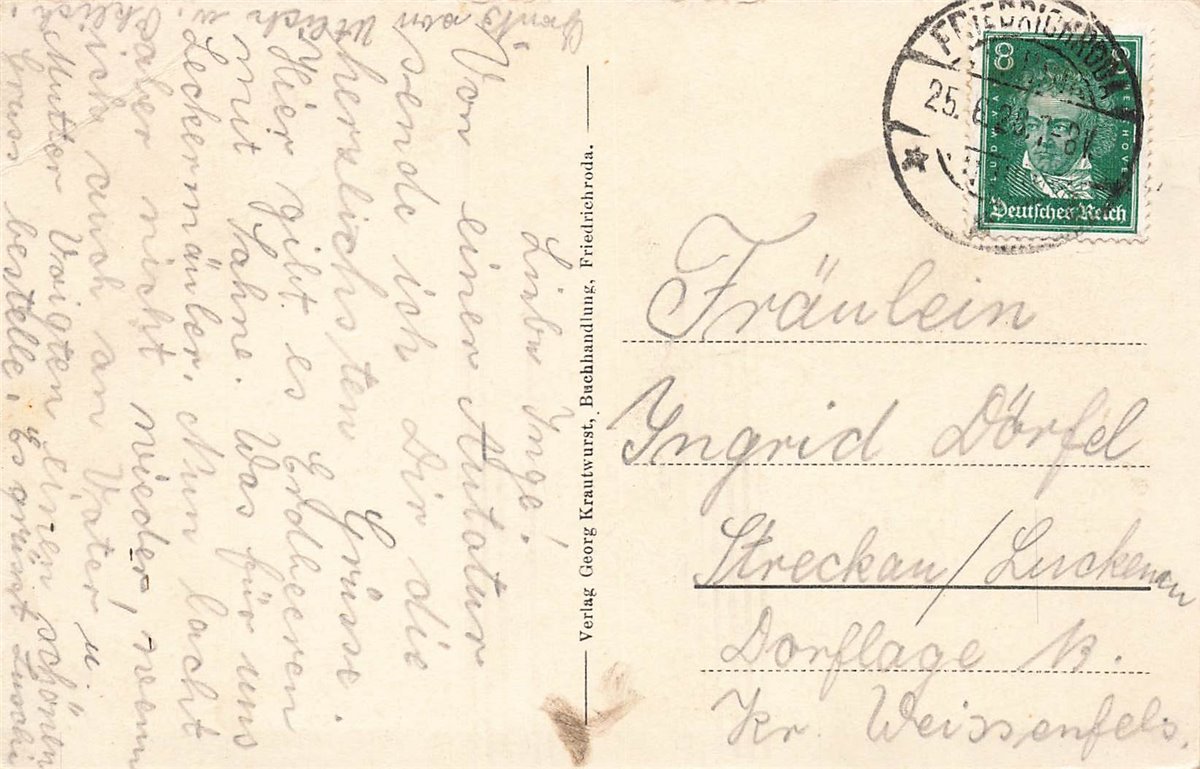 Liebe Inge!
Von einer Autotur
sende ich Dir die
herzlichsten Grüsse.
Hier gibt es Erdbeeren
mit Sahne. Was für uns
Leckermäuler. Nun lacht
aber nicht wieder, wenn
ich auch an Vater u.
Mutter Voigten einen schönen
Gruss bestelle. Es grüsst
Verlag Georg Krautwurst, Buchhandlung, Friedrichroda.
FRIEDRICHRODA
25. 6. 7-8
8 8
LUDWIG VAN BEETHOVEN
Deutsches Reich
Fräulein
Ingrid Dörfel
Streckau/Luckenau
Dorflage
Kr. Weissenfels.